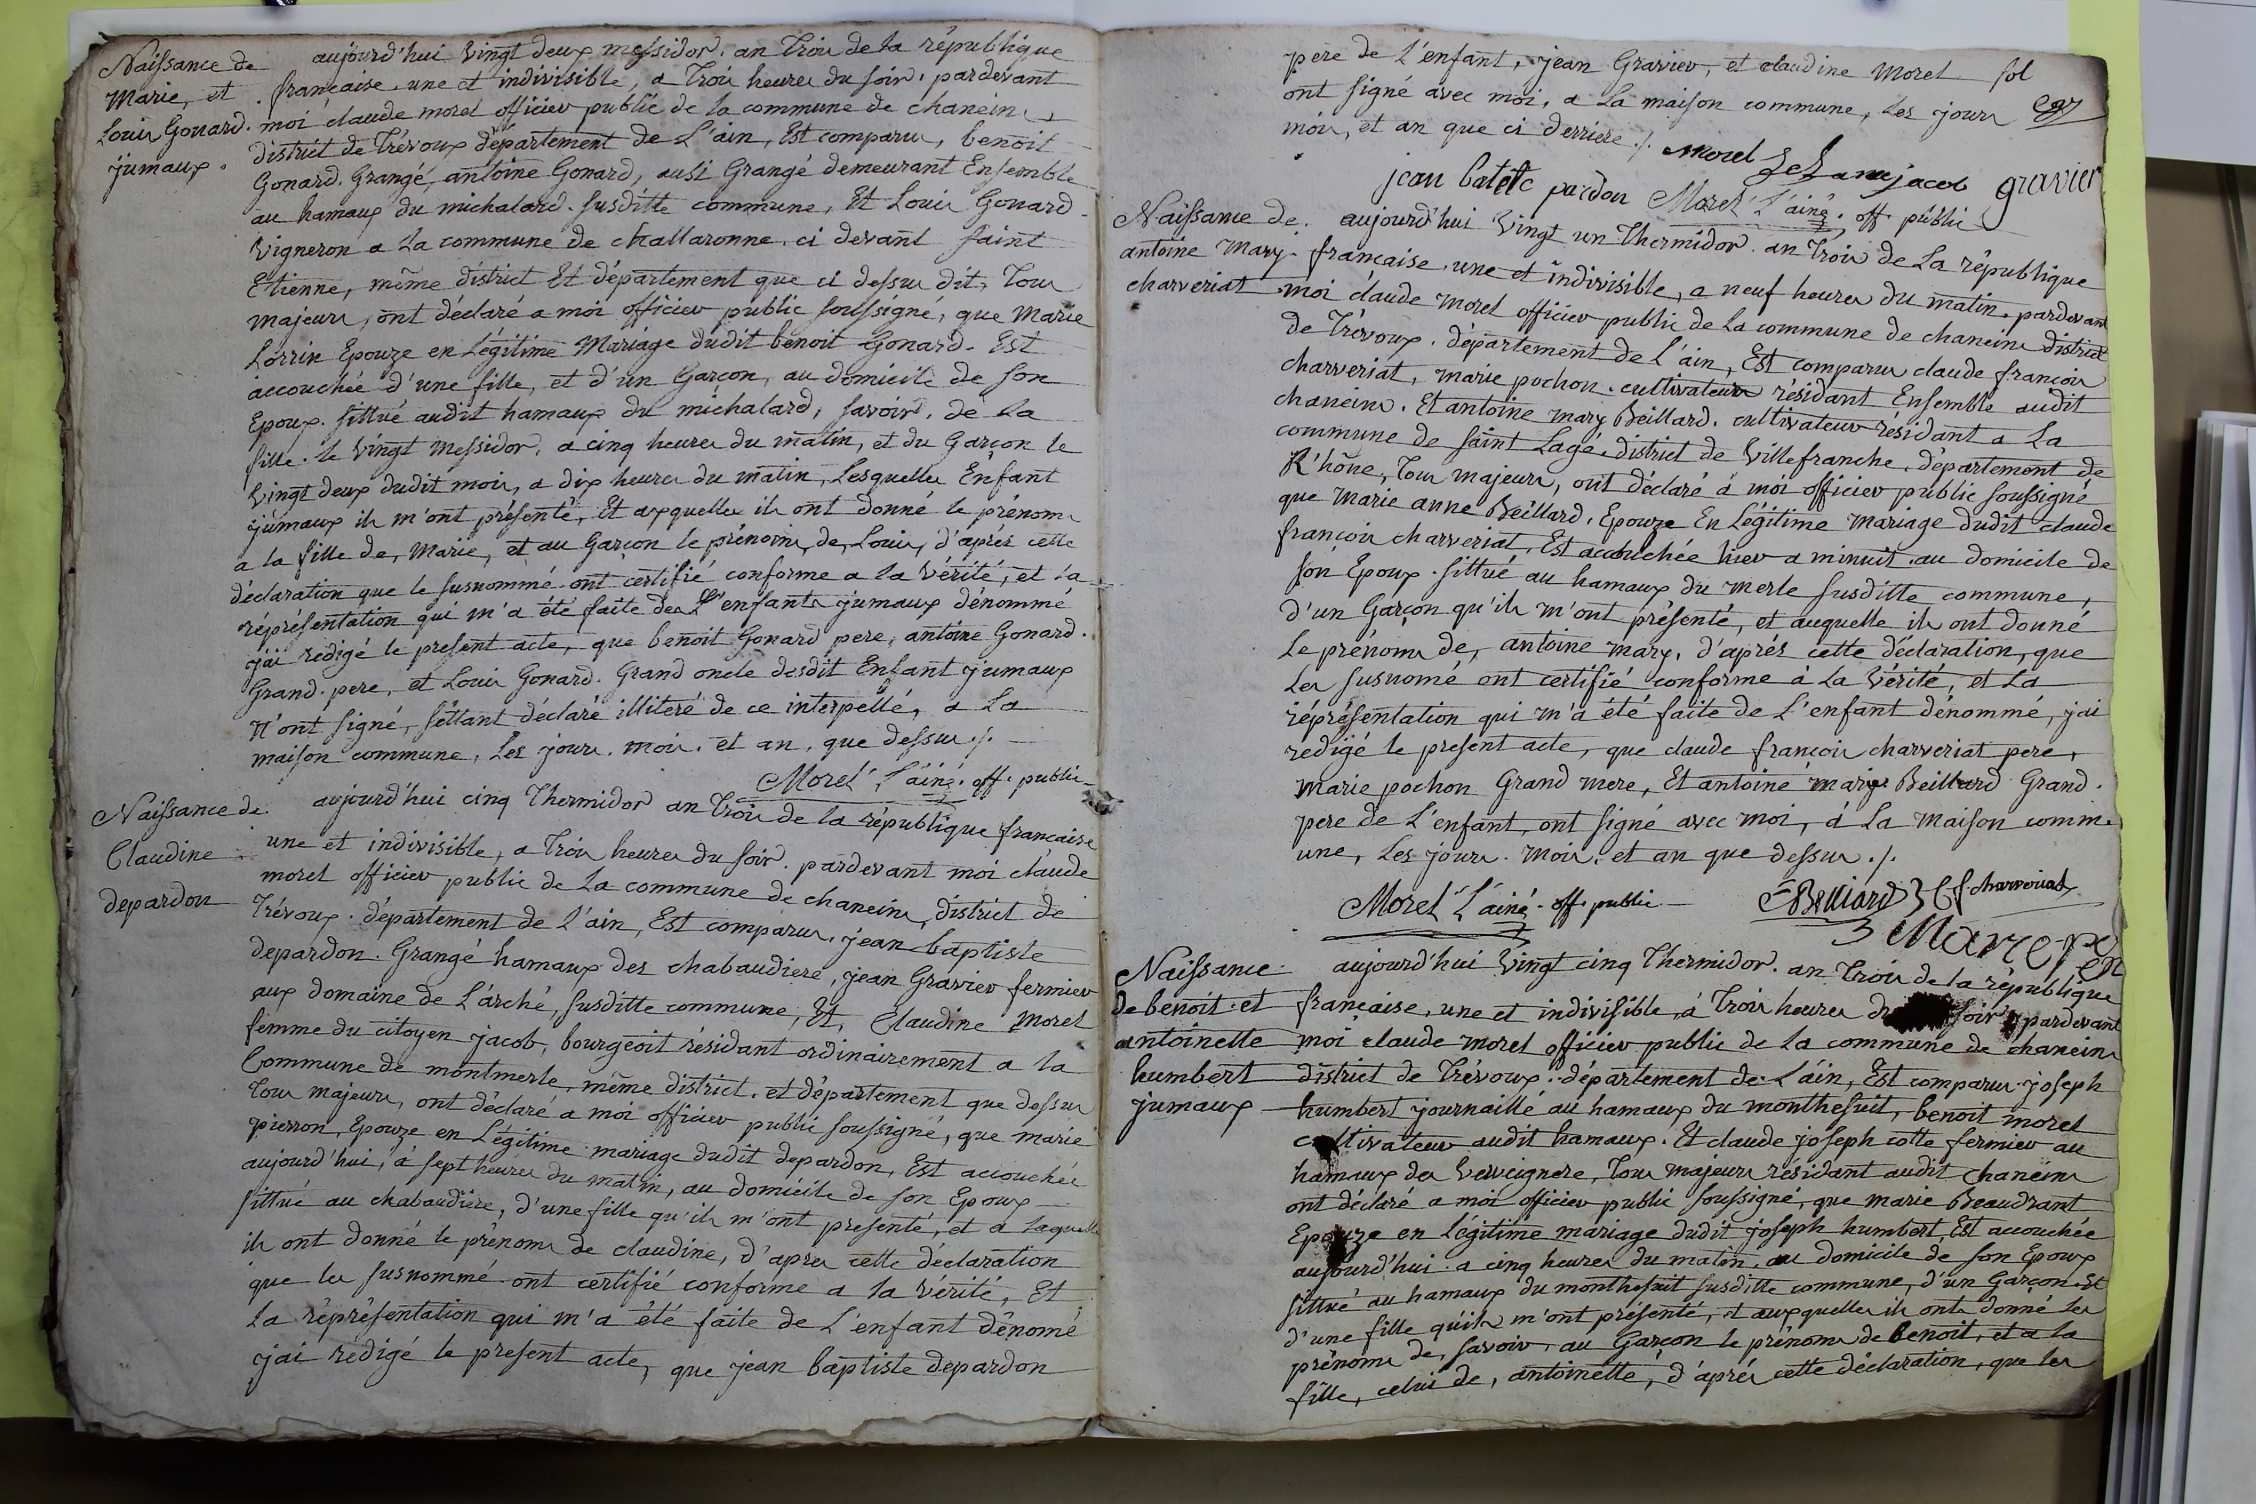 Naissance de
Marie, et
Louis Gonard.
jumaux.
aujourd'hui vingt deux messidor. an trois de la république
française. une et indivisible, a trois heures du soir. pardevant
moi claude morel officier public de la commune de chaneins
district de Trévoux département de L'ain, Est comparus, benoit
Gonard. Grangé, antoine Gonard, ausi Grangé demeurant Ensemble
au hamaux du michalard. susditte commune, Et Louis Gonard
vigneron a La commune de challaronne. ci devant saint
Etienne, même district Et département que ci dessus dit, Tous
majeurs, ont déclaré a moi officier public soussigné, que Marie
Lorrin Epouze en Légitime Mariage dudit benoit Gonard. Est
accouchée d'une fille, et d'un Garçon, au domicile de son
Epoux. sittué audit hamaux du michalard, savoir, de la
fille. le vingt Messidor, a cinq heures du matin, et du Garçon le
vingt deux dudit mois, a dix heures du matin, Lesquelles Enfant
jumaux ils m'ont présenté, Et auxquelles ils ont donné le prénoms
a la fille de, Marie, et au Garçon le prénoms, de, Louis, d'aprés cette
déclaration que le susnommé ont certifié conforme a la vérité, et la
représentation qui m'a été faite des L'enfants jumaux dénommé
j'ai redigé le present acte, que benoit Gonard pere, antoine Gonard.
Grand. pere, et Louis Gonard. Grand oncle desdit Enfant jumaux
n'ont signé, séttant déclaré illiteré de ce interpellé, a La
maison commune, Les jours. mois. et an. que dessus ./.
Morel L'ainé. off. public
Naissance de
Claudine
depardon
aujourd'hui cinq Thermidor an trois de la république française
une et indivisible, a trois heures du soir. pardevant moi claude
morel officier public de La commune de chaneins district de
Trévoux. département de L'ain, Est comparus, jean baptiste
depardon. Grangé hamaux des chabaudiere, jean Gravier fermier
aux domaine de L'arché, susditte commune, Et, Claudine Morel
femme du citoyen jacob, bourgeoit résidant ordinairement a la
Commune de montmerle, même district. et département que dessus
tous majeurs, ont déclaré a moi officier public soussigné, que marie
pierron, Epouze en Légitime mariage dudit depardon, Est accouchée
aujourd'hui, a sept heures du matin, au domicile de son Epoux
sittué au chabaudiere, d'une fille qu'ils m'ont presenté, et a Laquelle
ils ont donné le prénoms de claudine, d'apres cette déclaration
que les susnommé ont certifié conforme a la vérité, Et
la représentation qui m'a été faite de L'enfant dénomé
j'ai redigé le present acte, que jean baptiste depardon
pere de L'enfant, jean Gravier, et claudine Morel fol
ont signé avec moi, a La maison commune, Les jours
mois, et an que ci derriere ./. Morel jacob gravier
jean batetc pardon Morel L'ainé. off. public
Naissance de
antoine Mary
charveriat
aujourd'hui vingt un Thermidor. an trois de La république
française, une et indivisible, a neuf heures du matin. pardevant
moi claude morel officier public de La commune de chaneins district
de Trévoux. département de L'ain, Est comparus claude françois
charveriat, marie pochon. cultivateurs résidant Ensemble audit
chaneins. Et antoine mary Beillard. cultivateur résidant a La
commune de saint Lagé. district de villefranche. département de
R'hône, tous majeurs, ont déclaré á moi officier public soussigné
que marie anne Beillard, Epouze En Légitime mariage dudit claude
françois charveriat, Est accouchée hier a minuit. au domicile de
són Epoux. sittué au hamaux du merle susditte commune,
d'un Garçon qu'ils m'ont présenté, et auquelle ils ont donné
Le prénoms de, antoine mary, d'aprés cette déclaration, que
Les susnomé ont certifié conforme à La vérité, et La
réprésentation qui m'a été faite de L'enfant dénommé, jai
redigé le present acte, que claude françois charveriat pere,
Marie pochon Grand mere, Et antoine mary Beillard Grand.
pere de L'enfant, ont signé avec moi, á La maison comm.
une, Les jours. mois. et an que dessus ./.
Morel L'ainé. off. public
Naissance
de benoit. et
antoinette
humbert
jumaux
aujourd'hui vingt cinq Thermidor. an trois de la république
française, une et indivisible, á trois heures du soir pardevant
moi claude morel officier public de La commune de chaneins
district de Trévoux. département de L'ain, Est comparus. joseph
humbert journaillé au hamaux du monthesuit, benoit morel
cultivateur audit hamaux. Et claude joseph cotte fermier au
hamaux des, tous majeurs résidant audit chaneins
ont déclaré a moi officier public soussigné, que marie Beaudrant
Epouze en Légitime mariage dudit joseph humbert, Est accouchée
aujourd'hui. a cinq heures du matin. au domicile de son Epoux
sittué au hamaux du monthesuit susditte commune, d'un Garçon. Et
d'une fille qu'ils m'ont présenté, et auxquelles ils onts donné les
prénoms de, savoir, au Garçon le prénoms de benoit, et a la
fille, celui de, antoinette, d'aprés cette déclaration, que les